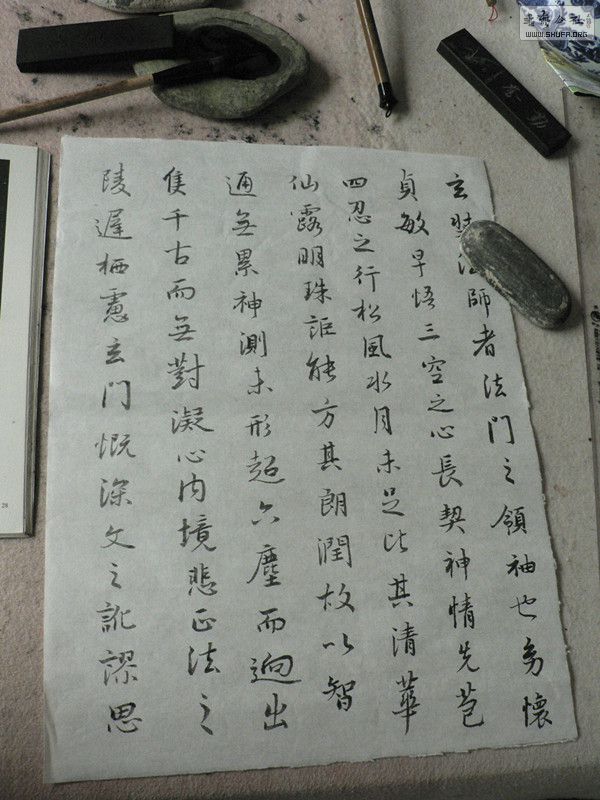 玄奘法師者法門之領袖也幼懷
貞敏早悟三空之心長契神情先苞
四忍之行松風水月未足比其清華
仙露明珠詎能方其朗潤故以智
通無累神測未形超六塵而迥出
隻千古而無對凝心內境悲正法之
陵遲栖慮玄門慨深文之訛謬思
WWW.SHUFA.ORG
28